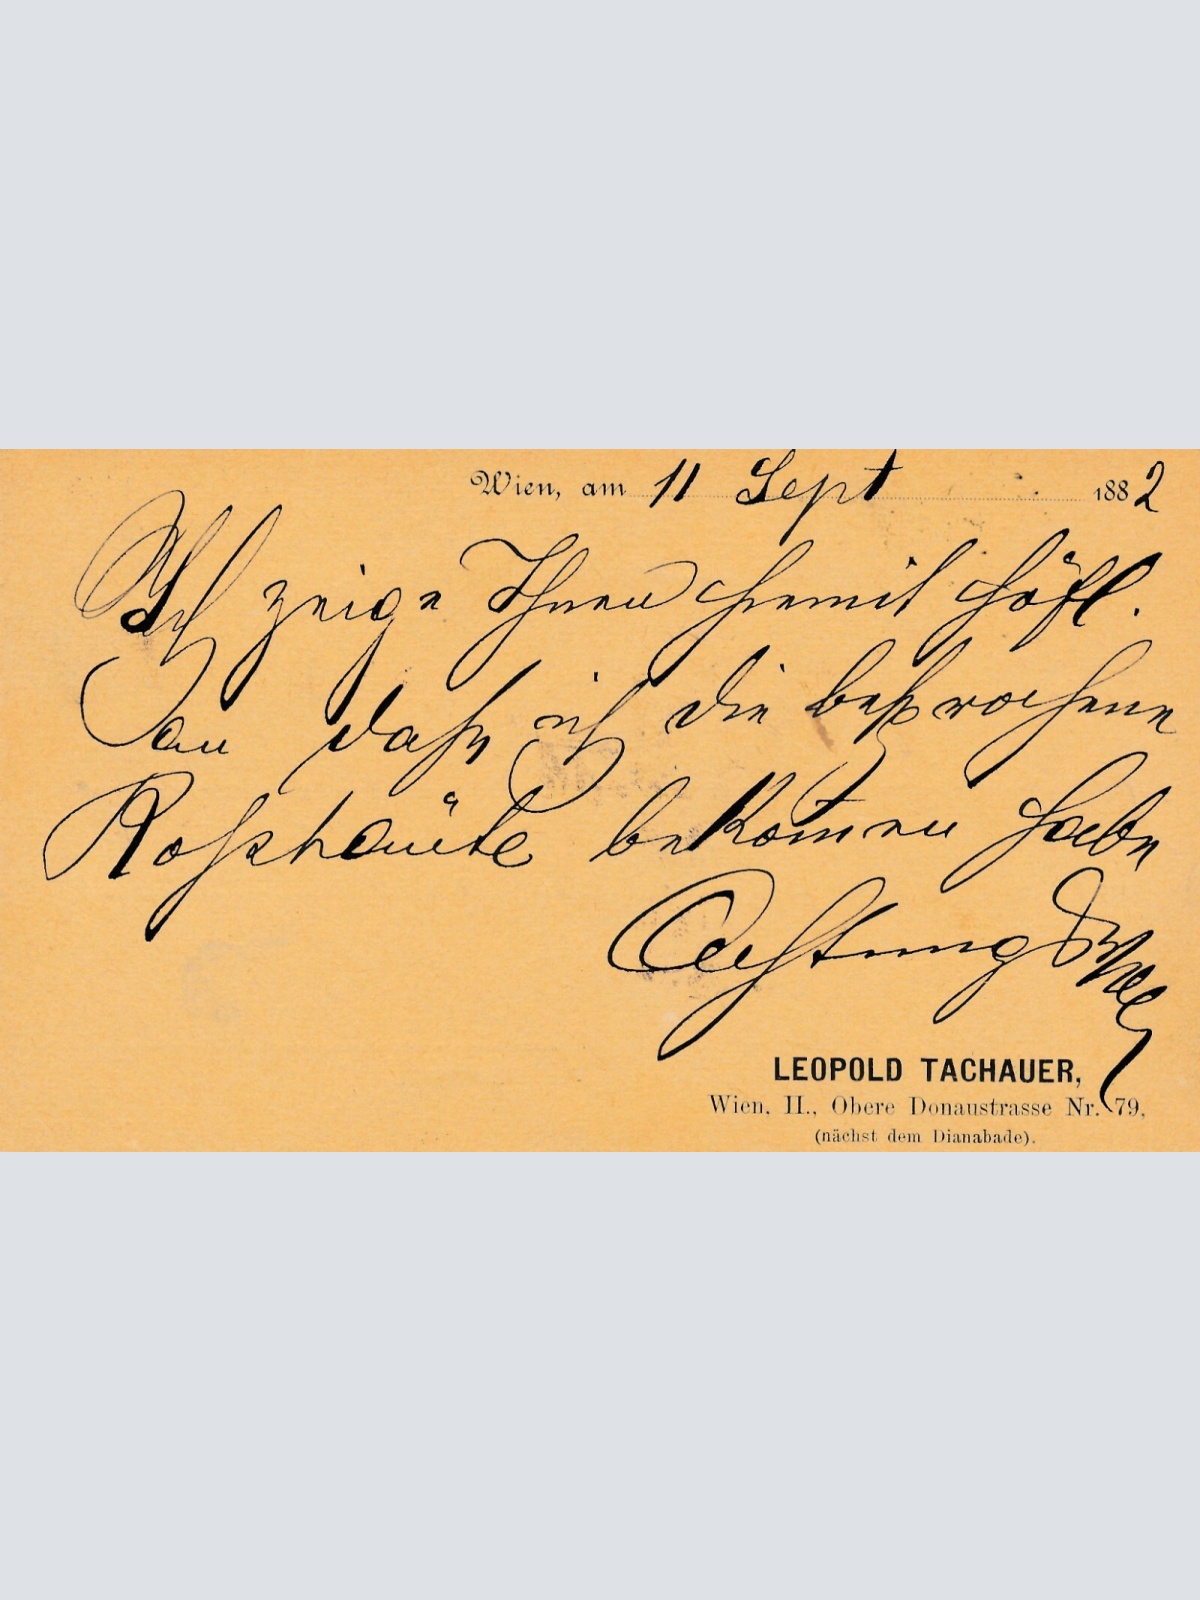 Wien, am 11 Sept 1882
Ich zeige Ihnen hiemit höfl.
an daß ich die besprochene
Roßhäute bekom̄en habe
Achtungs
LEOPOLD TACHAUER,
Wien, II., Obere Donaustrasse Nr. 79,
(nächst dem Dianabade).